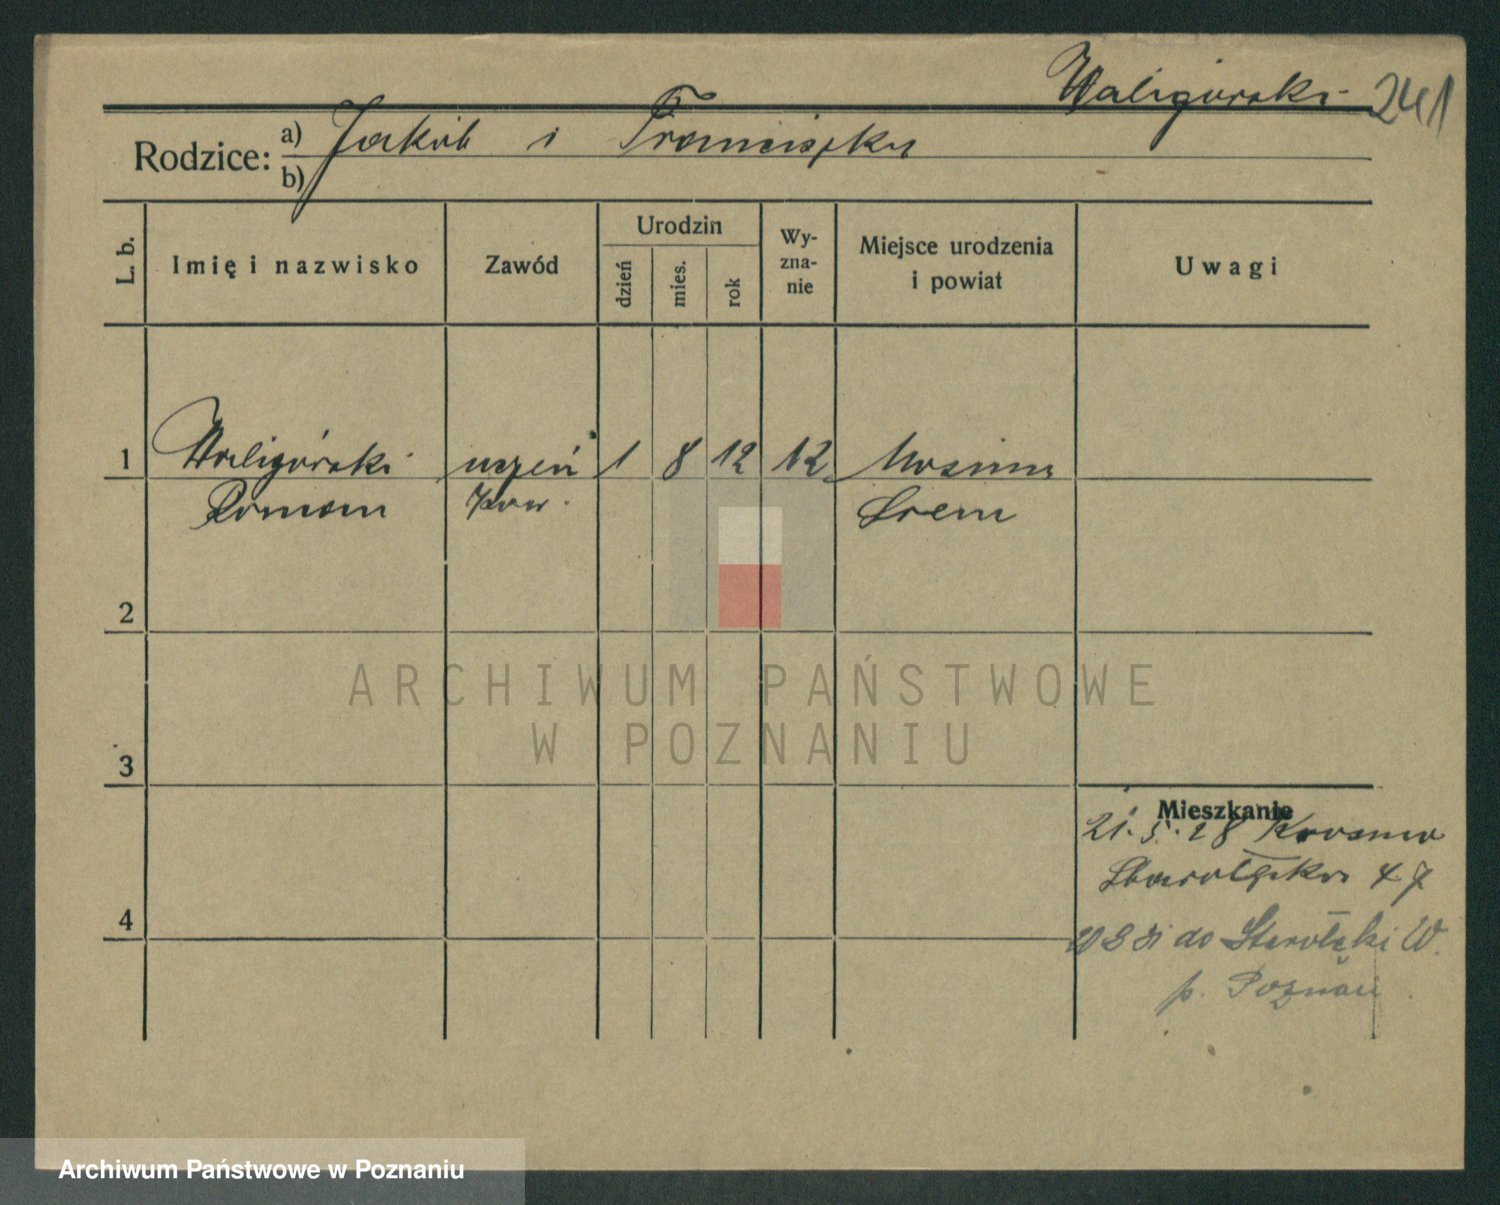 Waligórski 241
Rodzice: a) Jakób i Franciszka
b)
L. b. Imię i nazwisko Zawód Urodzin dzień mies. rok Wy-zna-nie Miejsce urodzenia i powiat Uwagi
1 Waligórski uczeń 1 8 12 Mosina
Roman Śrem
2
ARCHIWUM PAŃSTWOWE
W POZNANIU
3
Mieszkanie
21.5.28
Starołęka 47
4
do Starołęki W.
p. Poznań
Archiwum Państwowe w Poznaniu